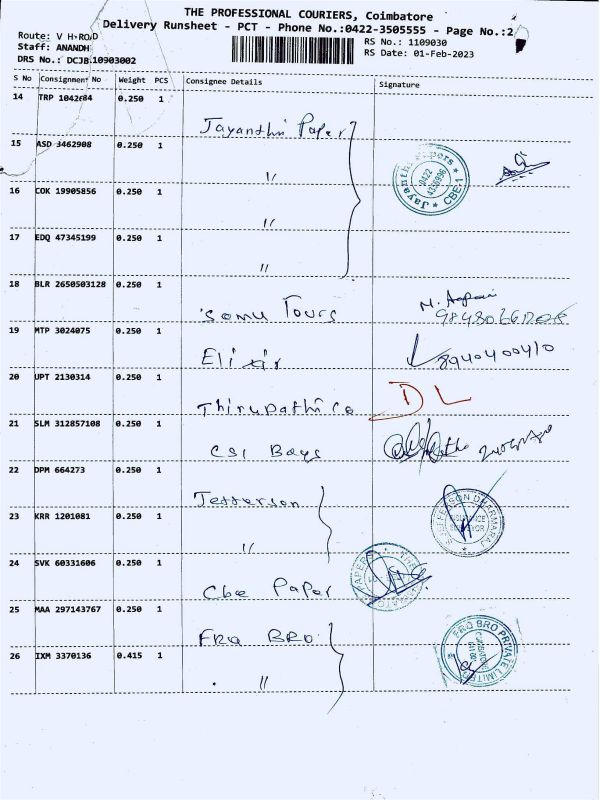 THE PROFESSIONAL COURIERS, Coimbatore
Delivery Runsheet - PCT - Phone No.:0422-3505555 - Page No.:2
Route: V H-ROAD
RS No.: 1109030
Staff: ANANDH
RS Date: 01-Feb-2023
DRS No.: DCJB10903002
S No Consignment No Weight PCS Consignee Details Signature
14 TRP 1042684 0.250 1 Jayanthi Paper
15 ASD 3462908 0.250 1 "
16 COK 19905856 0.250 1 "
17 EDQ 47345199 0.250 1 "
18 BLR 2650503128 0.250 1 Somu Tours
19 MTP 3024075 0.250 1 Elixir 8940400410
20 UPT 2130314 0.250 1 Thirupathi Co DL
21 SLM 312857108 0.250 1 CSI Boys
22 DPM 664273 0.250 1 Jefferson
23 KRR 1201081 0.250 1 "
24 SVK 60331606 0.250 1 Cbe Paper
25 MAA 297143767 0.250 1 FRQ BRO
FRQ BRO PRIVATE LIMITED
26 IXM 3370136 0.415 1 "